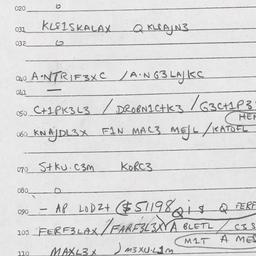 020
031 KLE1SKALAX Q KLRAJN3
032
040 A·NTRIF3XC / A·NG3LAJKC
041
050 C+1PK3L3 / DROBN1C+K3 / G3C+1P3
060 KNAJDL3X F1N MAC3 MEJL / KATOFL
070 S+KU·C3M KORC3
080
090 – AP LODZ+ ($51198 Q i & Q FERF
100 FERF3LAX / FARF3L3X A BLETL / C3S
M1T A MES
110 MAXL3X